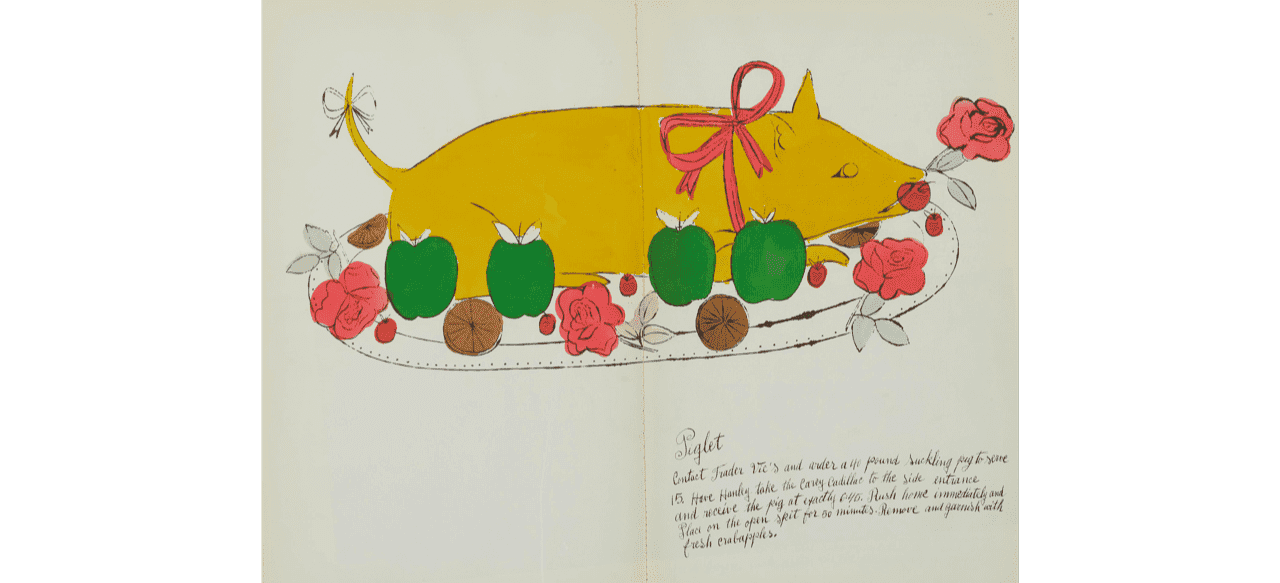 Piglet
Contact Trader Vic's and order a 40 pound suckling pig to serve
15. Have Hanley take the Carey Cadillac to the side entrance
and receive the pig at exactly 6:45. Rush home immediately and
Place on the open spit for 50 minutes. Remove and garnish with
fresh crabapples.